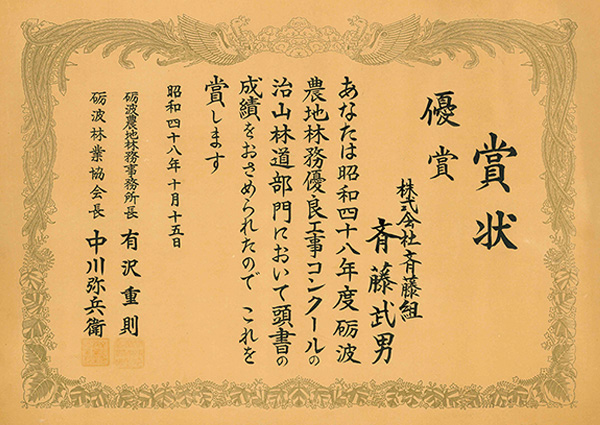 賞状
優賞
株式会社斉藤組
斉藤武男
あなたは昭和四十八年度砺波
農地林務優良工事コンクールの
治山林道部門において頭書の
成績をおさめられたので これを
賞します
昭和四十八年十月十五日
砺波農地林務事務所長 有沢重則
砺波林業協会長 中川弥兵衛